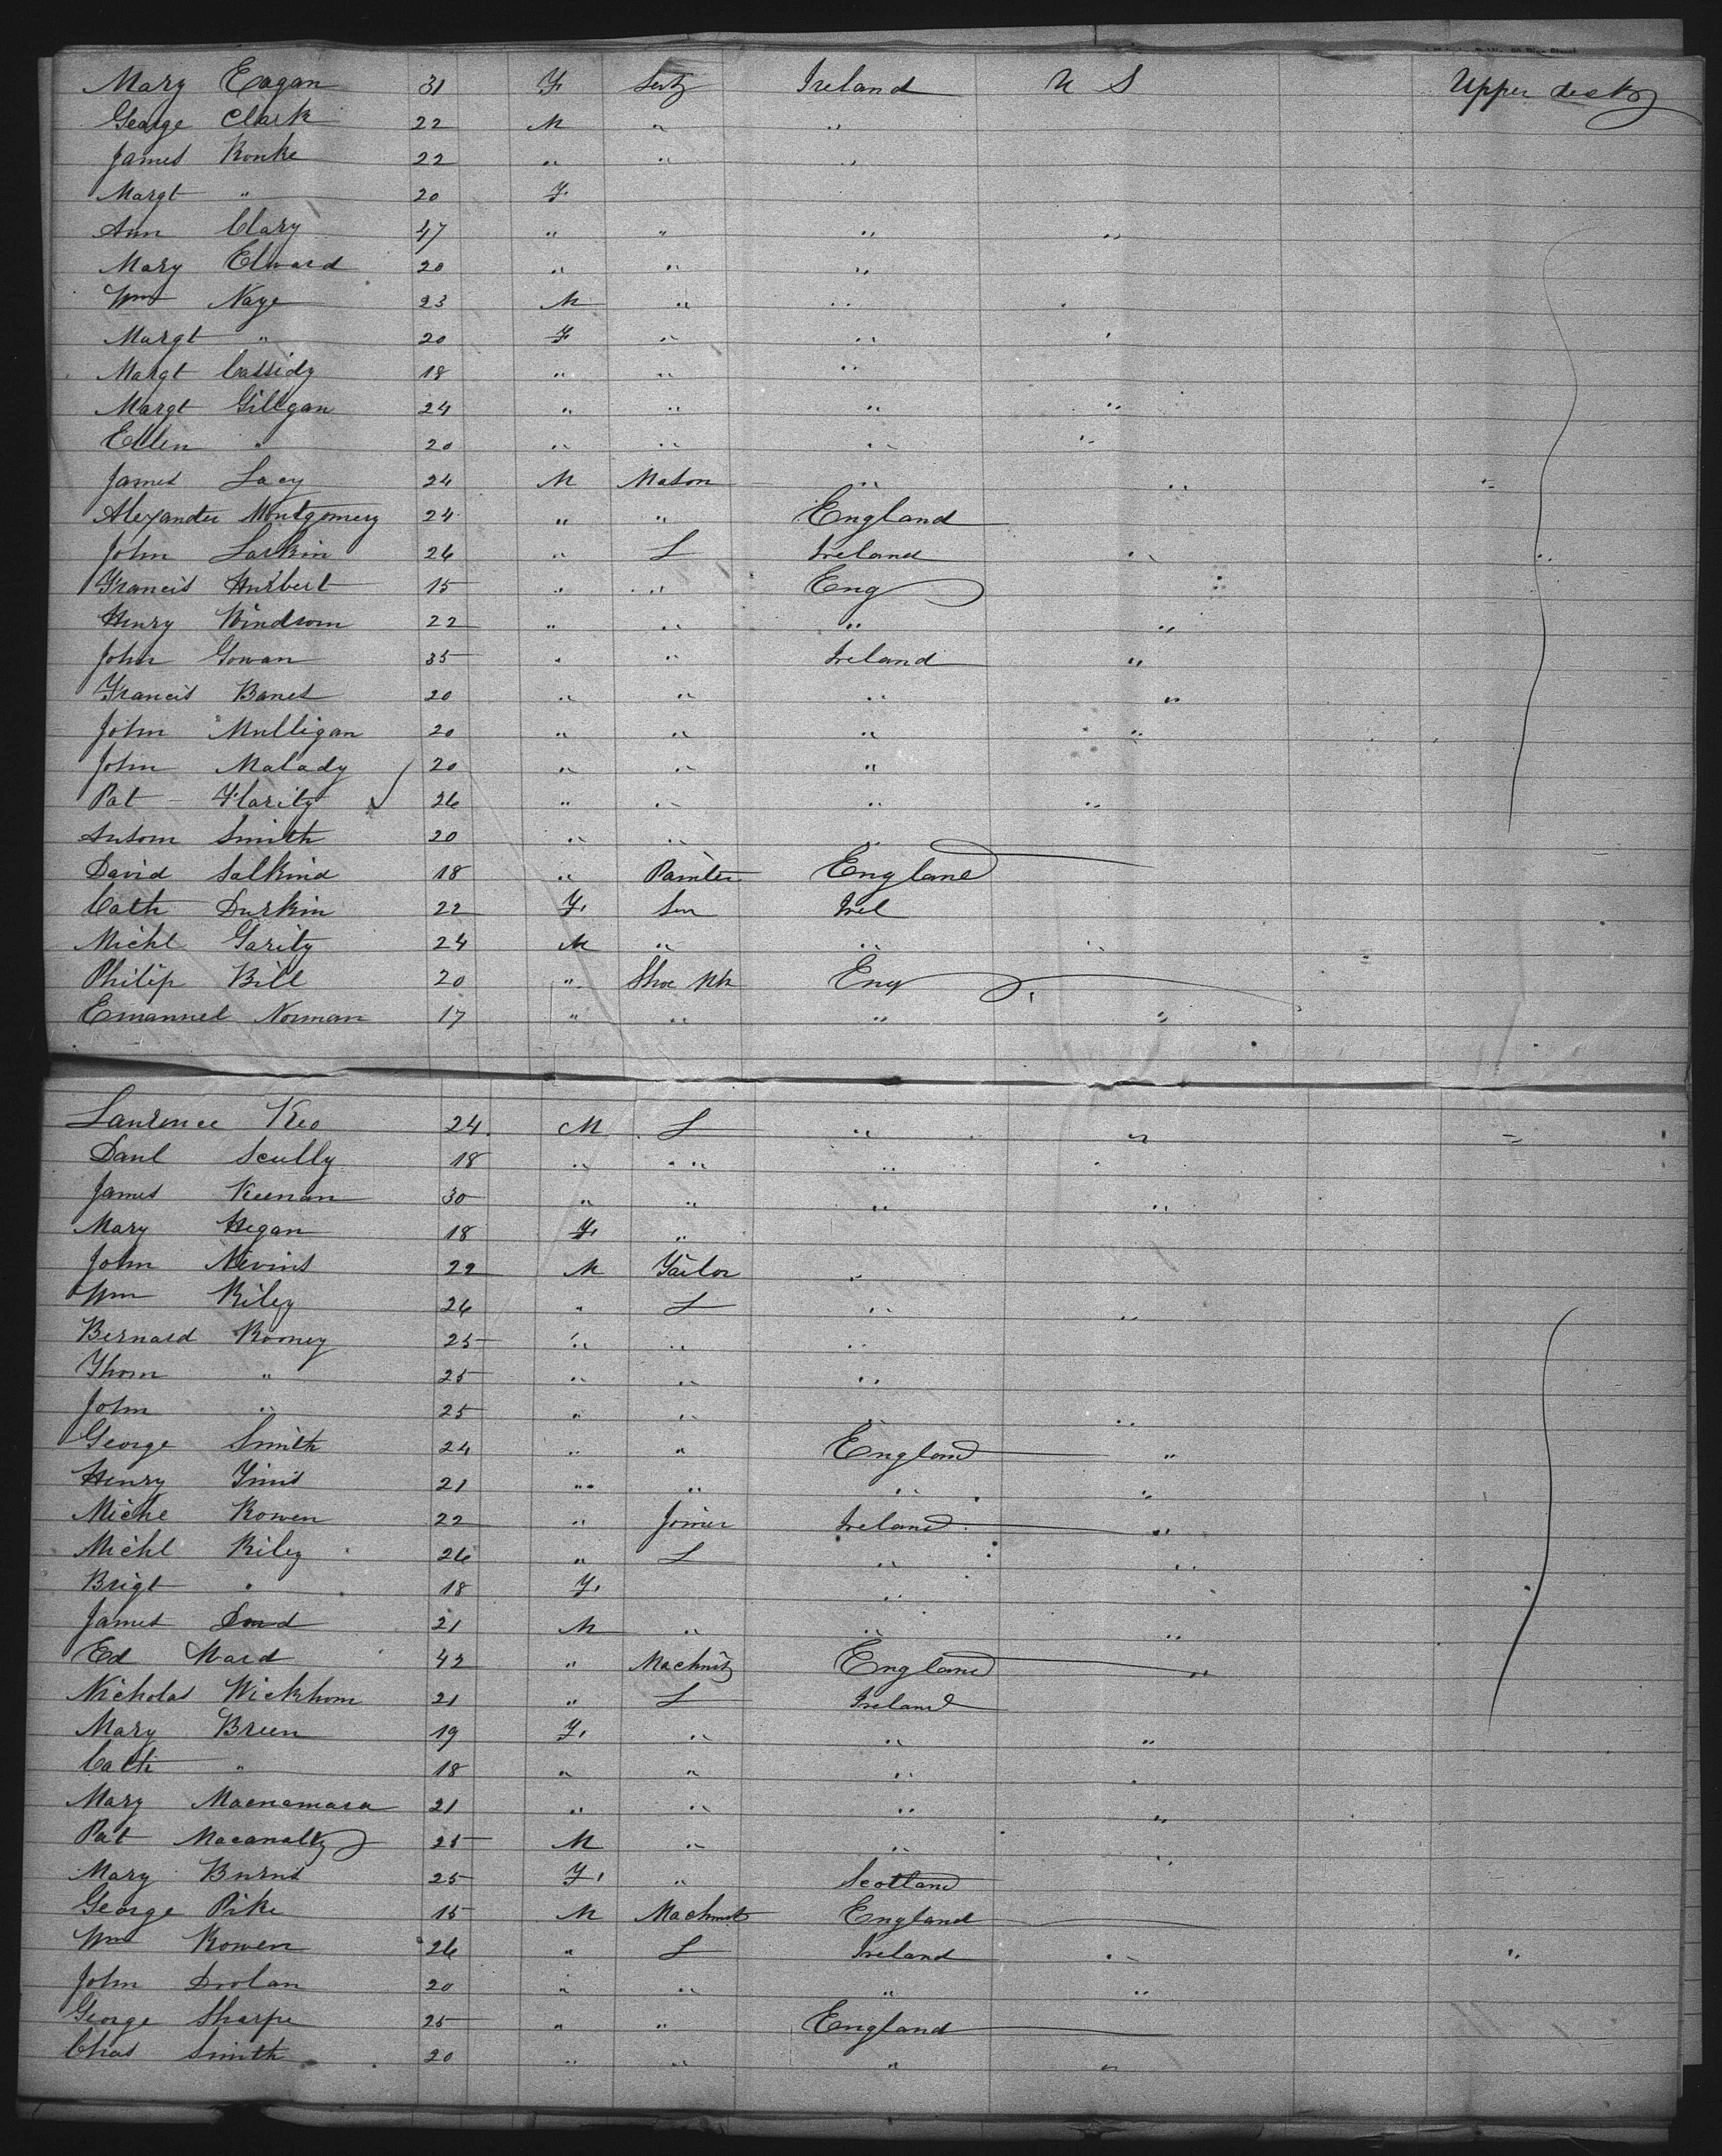 Mary Eagan 31 F. Ireland U S Upper deck
George Clark 22 M " "
James Rorke 22 " " "
Margt " 20 F.
Ann Clary 47 " " " "
Mary Elward 20 " " "
Wm Naye 23 M " " "
Margt " 20 F " " "
Margt Cassidy 18 " " "
Margt Gillgan 24 " " " "
Ellen " 20 " " " "
James Lacy 24 M Mason " " "
Alexander Montgomery 24 " " England
John Larkin 26 " L Ireland " "
Francis Hurbert 15 " " Eng "
Henry Windsom 22 " " " "
John Gowan 35 " " Ireland "
Francis Banes 20 " " " "
John Mulligan 20 " " " "
John Malady 20 " " "
Pat Flarity 26 " " " "
Ansom Smith 20 " " "
David Salkind 18 " Painter England
Cath Durkin 22 F. Ser Irel
Michl Garity 24 M " " "
Philip Bill 20 " Shoe Mk Eng "
Emanuel Norman 17 " " " "
Laurence Keo 24 M L " " "
Danl Scully 18 " " " "
James Keenan 30 " " " "
Mary Hegan 18 F. "
John Nevins 22 M Tailor "
Wm Riley 26 " L " "
Bernard Romey 25 " " "
Thom " 25 " " "
John " 25 " " " "
George Smith 24 " " England "
Henry Timis 21 " " " "
Michl Rowen 22 " Joiner Ireland "
Michl Riley 26 " L " "
Brigt " 18 F. "
James 21 M " " "
Ed Ward 42 " Machnist England "
Nicholas Wickhom 21 " L Ireland
Mary Breen 19 F. " " "
Cath " 18 " " " "
Mary Macnamara 21 " " " "
Pat Macanalty 25 M " " "
Mary Burns 25 F. " Scotland
George Pike 15 M Machnist England
Wm Rowen 26 " L Ireland " "
John Drolan 20 " " " "
George Sharpe 25 " " England
Chas Smith 20 " " " "